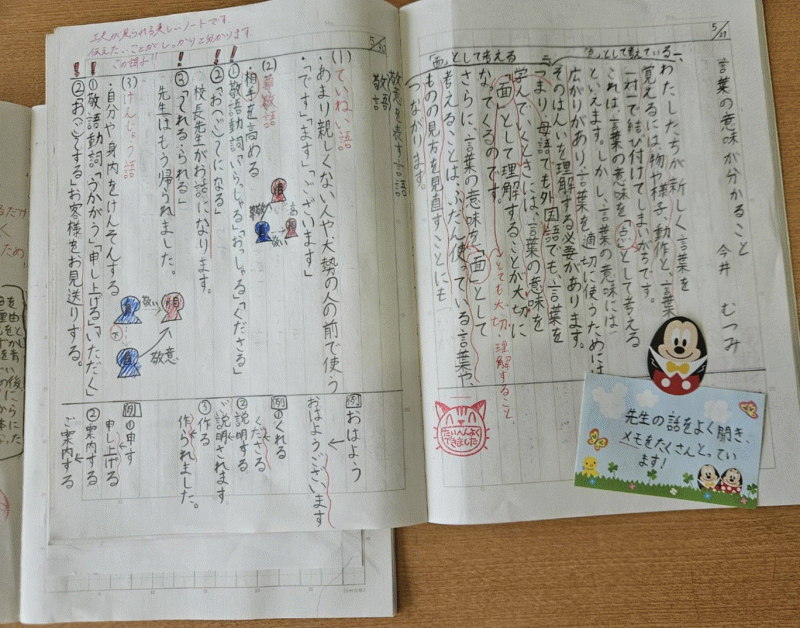 5/27
言葉の意味が分かること
今井 むつみ
わたしたちが新しく言葉を
覚えるには、物や様子、動作と、言葉を
一対一で結び付けてしまいがちです。
これは、言葉の意味を「点」として考える
といえます。しかし、言葉の意味には
広がりがあり、言葉を適切に使うためには
そのはんいを理解する必要があります。
つまり、母語でも外国語でも、言葉を
学んでいくときには、言葉の意味を
「面」として理解することが大切に
なってくるのです。
さらに、言葉の意味を「面」として
考えることは、ふだん使っている言葉や、
ものの見方を見直すことにも
つながります。
「点」として考えている
「面」として考える
とても大切 理解すること
たいへんよく
できました
先生の話をよく聞き、
メモをたくさんとってい
ます!
5/30
敬語
敬意を表す言語
(1)ていねい語
・あまり親しくない人や大勢の人の前で使う
・「です」「ます」「ございます」
(2)尊敬語
・相手を高める
①敬語動詞「いらっしゃる」「おっしゃる」「くださる」
②「お(ご)~になる」
校長先生がお話になります。
③「~れる・られる」
先生はもう帰られました。
(3)けんじょう語
・自分や身内をけんそんする
①敬語動詞「うかがう」「申し上げる」「いただく」
②「お(ご)~する」お客様をお見送りする。
敬い
敬意
例
おはよう
おはようございます
例
①くれる
くださる
②説明する
ご説明されます
③作る
作られました。
例
①申す
申し上げる
②案内する
ご案内する
工夫が見られる美しいノートです。
伝えたいことがしっかりと分かります。
この調子!!